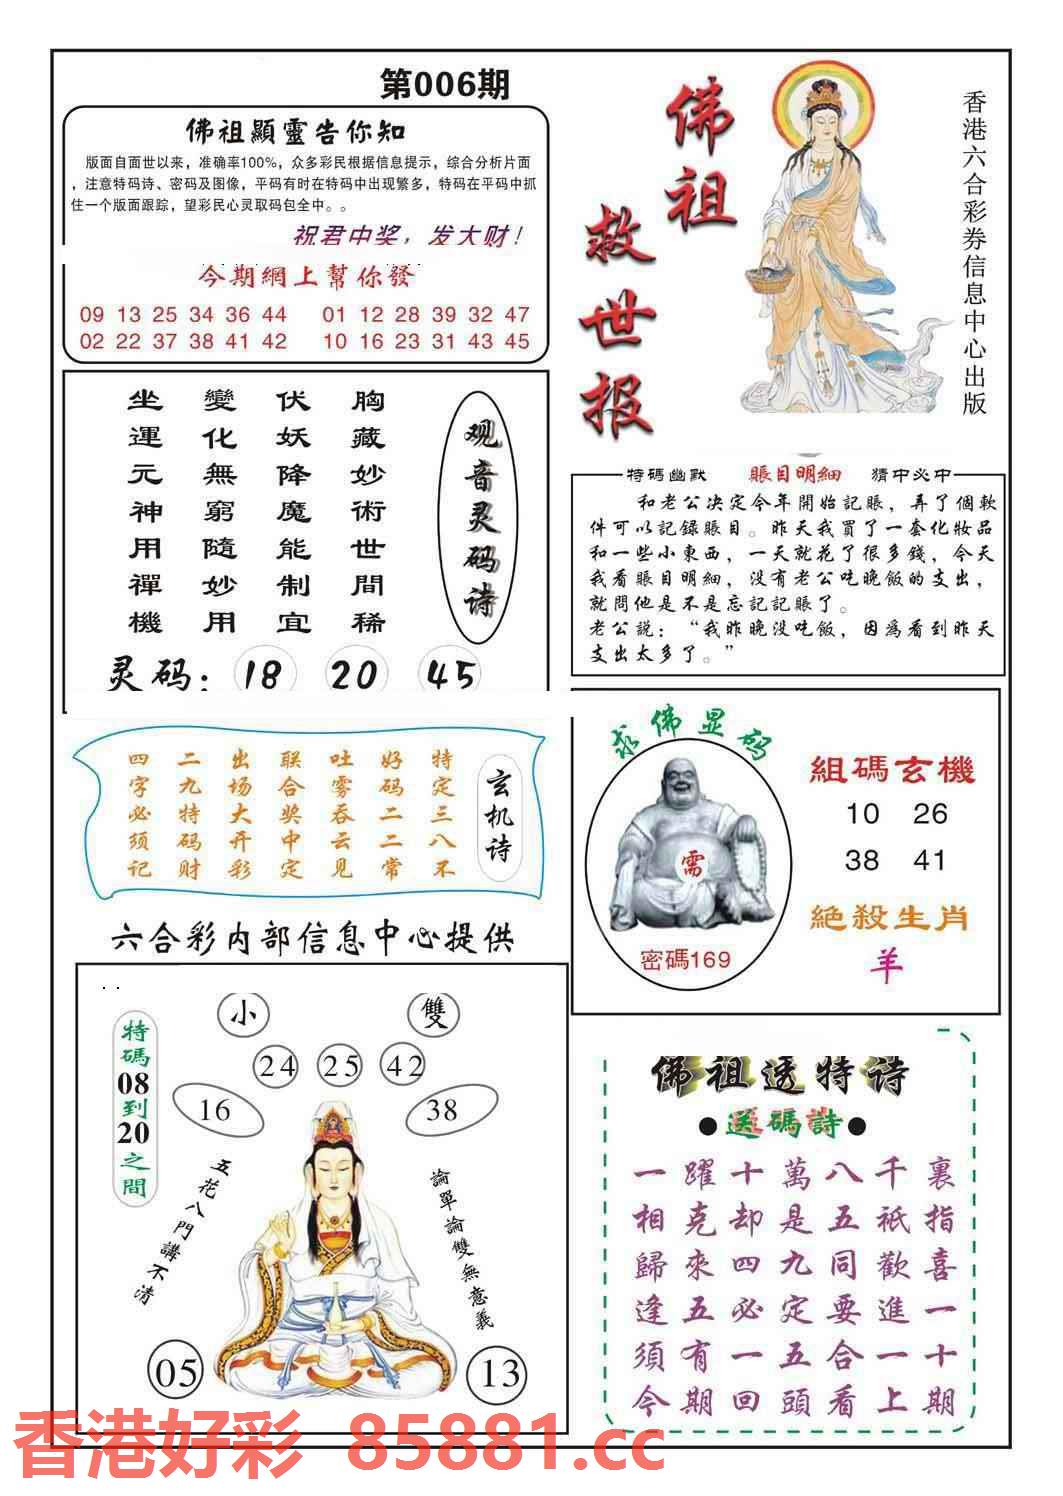 第006期
佛祖顯靈告你知
版面自面世以来，准确率100%，众多彩民根据信息提示，综合分析片面
，注意特码诗、密码及图像，平码有时在特码中出现繁多，特码在平码中抓
住一个版面跟踪，望彩民心灵取码包全中。。
祝君中奖，发大财！
今期網上幫你發
09 13 25 34 36 44 01 12 28 39 32 47
02 22 37 38 41 42 10 16 23 31 43 45
佛祖
救世报
香港六合彩券信息中心出版
观音灵码诗
胸藏妙術世間稀
伏妖降魔能制宜
變化無窮隨妙用
坐運元神用禪機
灵码：18 20 45
特碼幽默 賬目明細 猜中必中
和老公决定今年開始記賬，弄了個軟
件可以記錄賬目。昨天我買了一套化妝品
和一些小東西，一天就花了很多錢，今天
我看賬目明細，没有老公吃晚飯的支出，
就問他是不是忘記記賬了。
老公説：“我昨晚没吃飯，因爲看到昨天
支出太多了。”
玄机诗
特定三八不
好码二二常
吐雾吞云见
联合奖中定
出场大开彩
二九特码财
四字必须记
求佛显码
需
密碼169
組碼玄機
10 26
38 41
絶殺生肖
羊
六合彩内部信息中心提供
特碼08到20之間
小 雙
24 25 42
16 38
五花八門講不清
論單論雙無意義
05 13
佛祖透特诗
●送碼詩●
一躍十萬八千裏
相克却是五祇指
歸來四九同歡喜
逢五必定要進一
須有一五合一十
今期回頭看上期
香港好彩 85881.cc